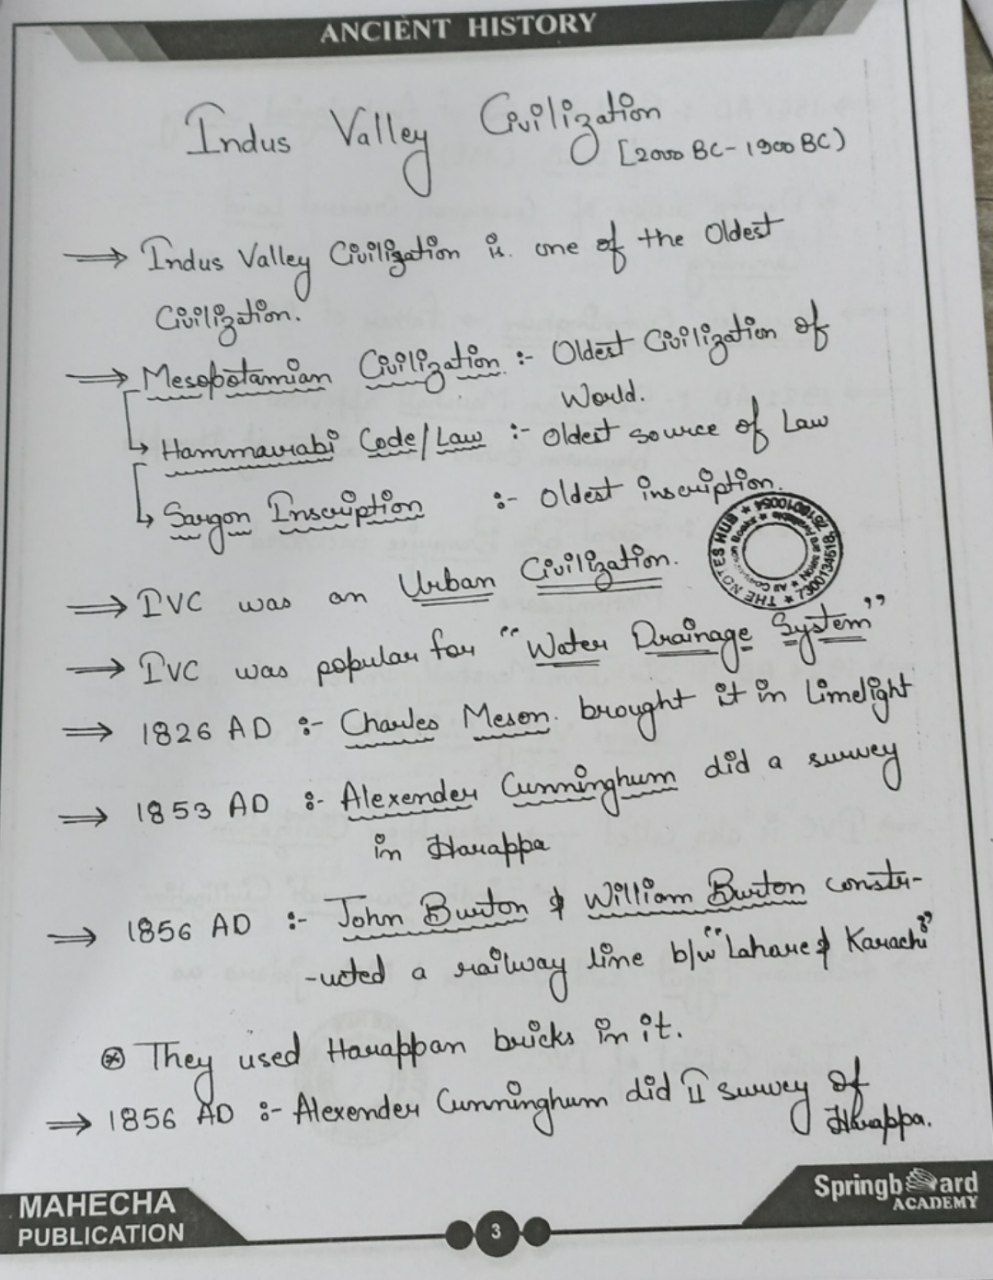 ANCIENT HISTORY
Indus Valley Civilization
[2000 BC - 1900 BC)
⟹ Indus Valley Civilization is one of the Oldest
Civilization.
⟹ Mesopotamian Civilization :- Oldest Civilization of
World.
↳ Hammaurabi Code/Law :- Oldest source of Law
↳ Sargon Inscription :- Oldest inscription.
THE NOTES HUB
⟹ IVC was an Urban Civilization.
⟹ IVC was popular for "Water Drainage System"
⟹ 1826 AD :- Charles Meson. brought it in Limelight
⟹ 1853 AD :- Alexender Cunninghum did a survey
in Harappa
⟹ 1856 AD :- John Burton & William Burton constr-
-ucted a railway line b/w "Lahare & Karachi"
⊛ They used Harappan bricks in it.
⟹ 1856 AD :- Alexender Cunninghum did II survey of
Harappa.
MAHECHA
PUBLICATION
3
Springboard
ACADEMY